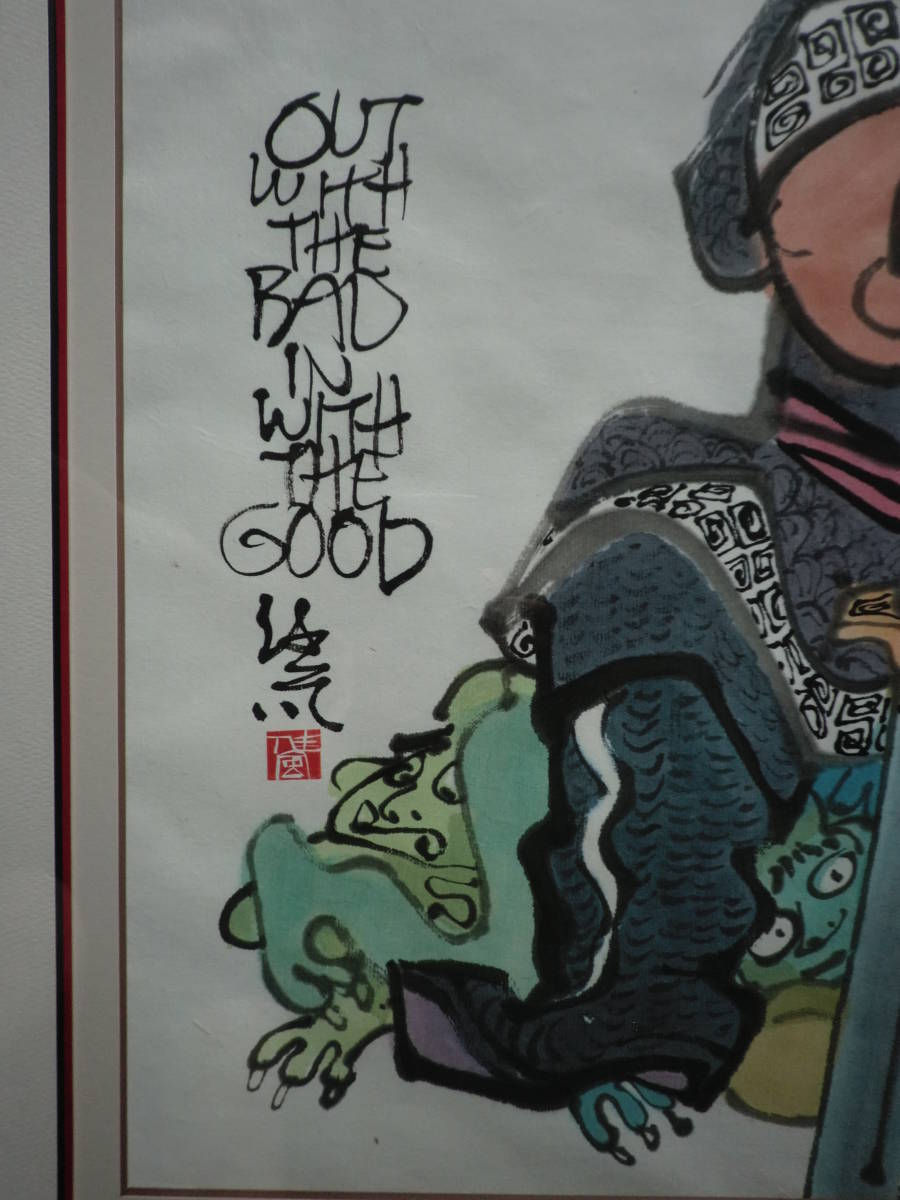 OUT
WITH
THE
BAD
IN
WITH
THE
GOOD